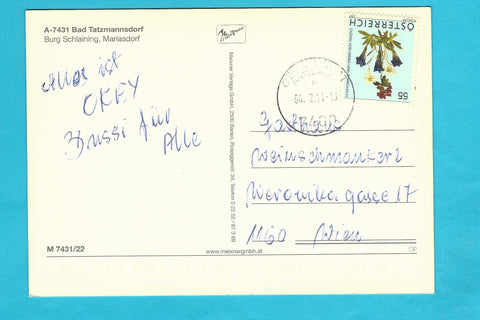 A-7431 Bad Tatzmannsdorf
Burg Schlaining, Mariasdorf
Alles ist
OKEY
Bussi für
Alle
M 7431/22
Meixner Verlags GmbH, 2500 Baden, Roseggerstr. 34, Telefon 0 22 52 / 87 3 69
www.meixnergmbh.at
ÖSTERREICH
55
04. 2.11-13
Weinschmankerl
Veronikagasse 17
1160 Wien